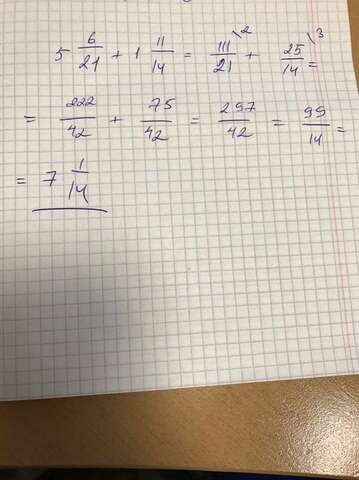 5 6/21 + 1 11/14 = 111/21 \2 + 25/14 \3 =
= 222/42 + 75/42 = 297/42 = 99/14 =
= 7 1/14